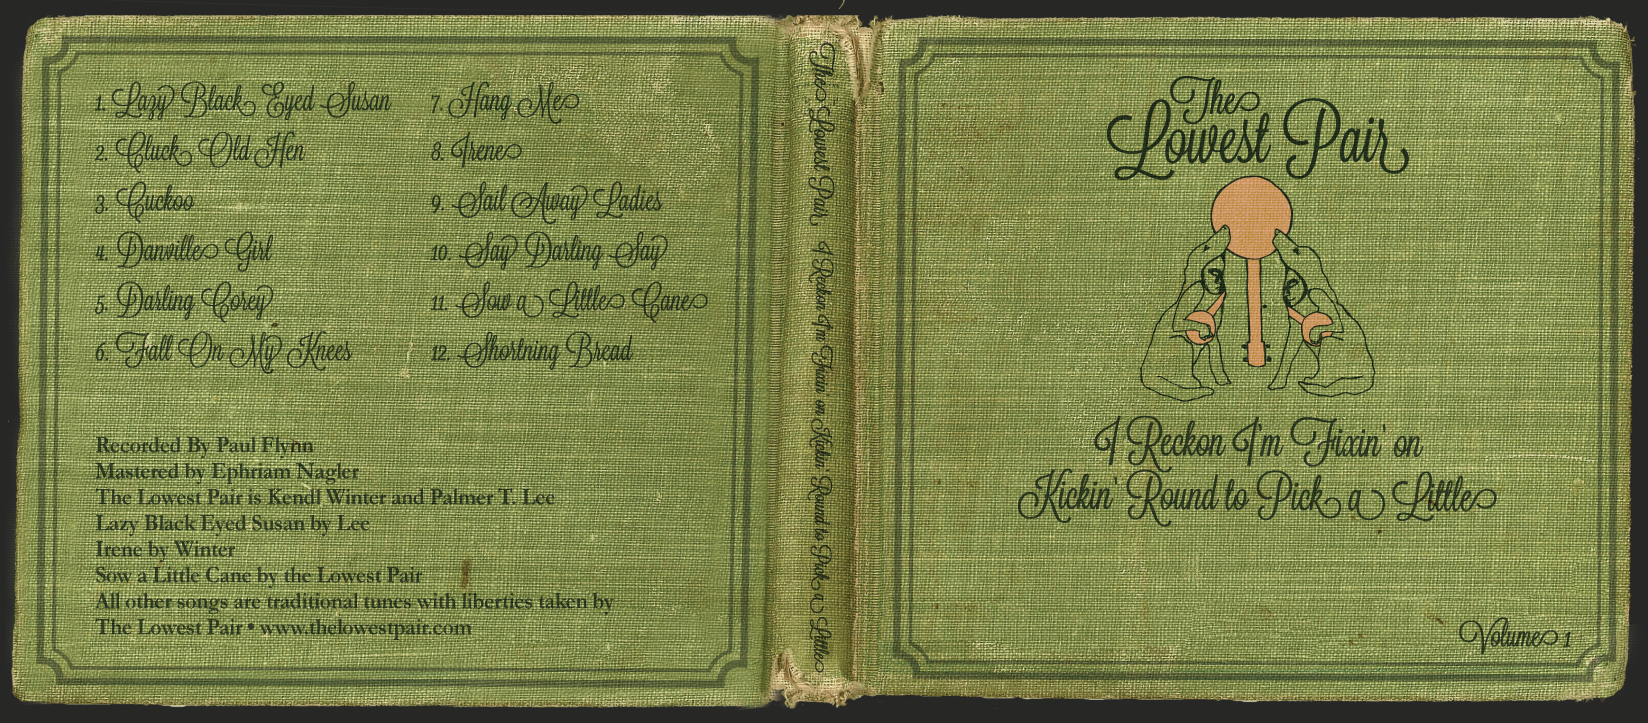 1. Lazy Black Eyed Susan
2. Cluck Old Hen
3. Cuckoo
4. Danville Girl
5. Darling Corey
6. Fall On My Knees
7. Hang Me
8. Irene
9. Sail Away Ladies
10. Say Darling Say
11. Sow a Little Cane
12. Shortning Bread
Recorded By Paul Flynn
Mastered by Ephriam Nagler
The Lowest Pair is Kendl Winter and Palmer T. Lee
Lazy Black Eyed Susan by Lee
Irene by Winter
Sow a Little Cane by the Lowest Pair
All other songs are traditional tunes with liberties taken by
The Lowest Pair • www.thelowestpair.com
The Lowest Pair I Reckon I'm Fixin' on Kickin' Round to Pick a Little
The
Lowest Pair
I Reckon I'm Fixin' on
Kickin' Round to Pick a Little
Volume 1